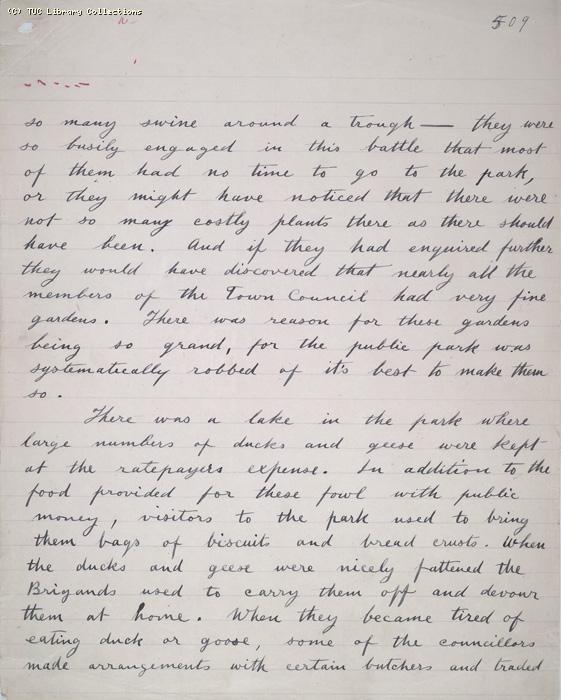 (C) TUC Library Collections
509
so many swine around a trough — they were
so busily engaged in this battle that most
of them had no time to go to the park,
or they might have noticed that there were
not so many costly plants there as there should
have been. And if they had enquired further
they would have discovered that nearly all the
members of the Town Council had very fine
gardens. There was reason for these gardens
being so grand, for the public park was
systematically robbed of it's best to make them
so.
There was a lake in the park where
large numbers of ducks and geese were kept
at the ratepayers expense. In addition to the
food provided for these fowl with public
money, visitors to the park used to bring
them bags of biscuits and bread crusts. When
the ducks and geese were nicely fattened the
Brigands used to carry them off and devour
them at home. When they became tired of
eating duck or goose, some of the councillors
made arrangements with certain butchers and traded